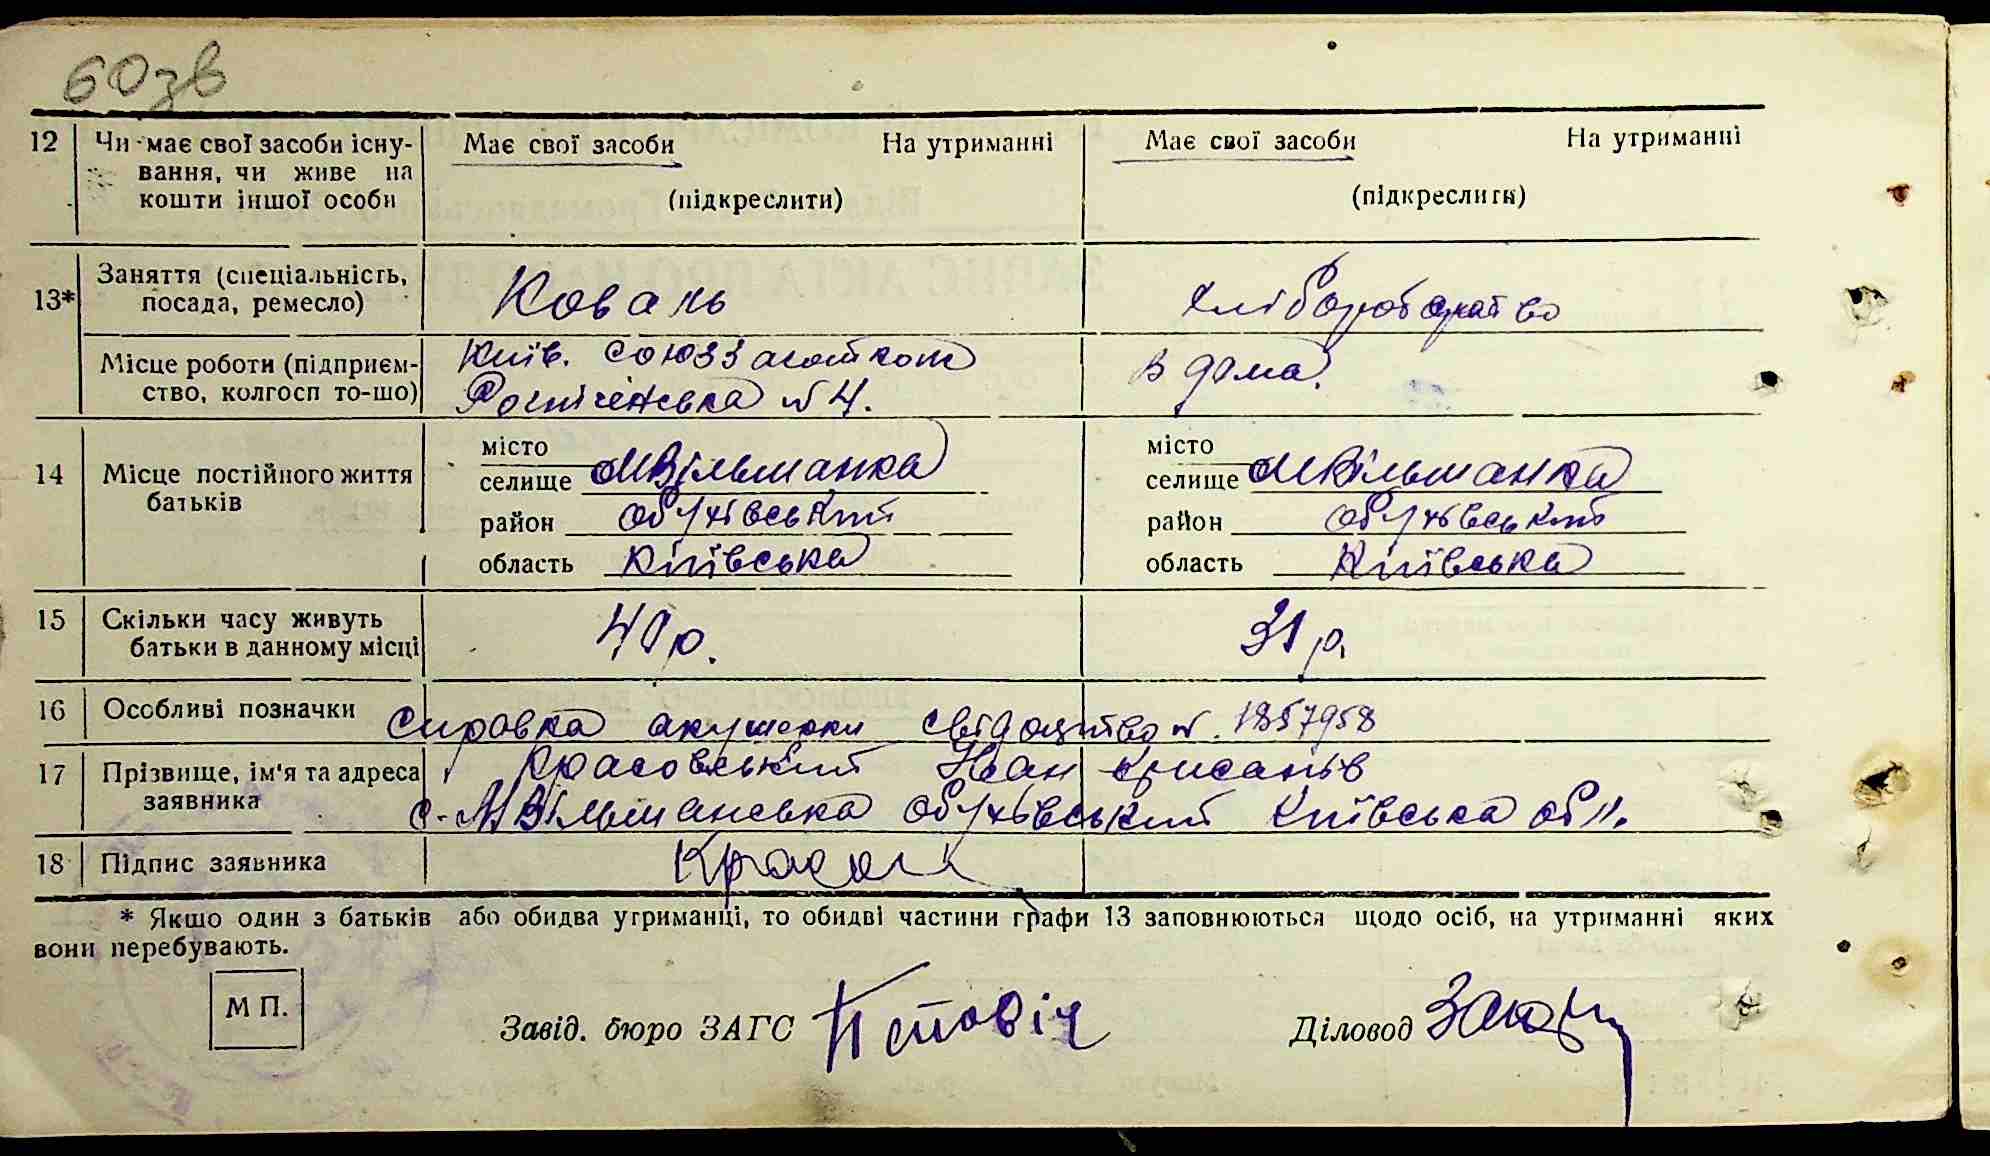 60зв
12 Чи має свої засоби існу- Має свої засоби На утриманні Має свої засоби На утриманні
вання, чи живе на
кошти іншої особи (підкреслити) (підкреслити)
13* Заняття (спеціальність,
посада, ремесло) Коваль хліборобство
Місце роботи (підприєм- Київ. союззаготкот В дома.
ство, колгосп то-що) №4.
14 Місце постійного життя
батьків
місто місто
селище МВільшанка селище МВільшанка
район Обухівський район Обухівський
область Київська область Київська
15 Скільки часу живуть
батьки в данному місці 40 р. 31 р.
16 Особливі позначки справка акушерки свідоцтво №. 1857958
17 Прізвище, ім'я та адреса Красовський Іван
заявника с. МВільшанська Обухівський Київська обл.
18 Підпис заявника
* Якщо один з батьків або обидва утриманці, то обидві частини графи 13 заповнюються щодо осіб, на утриманні яких
вони перебувають.
М П.
Завід. бюро ЗАГС Діловод